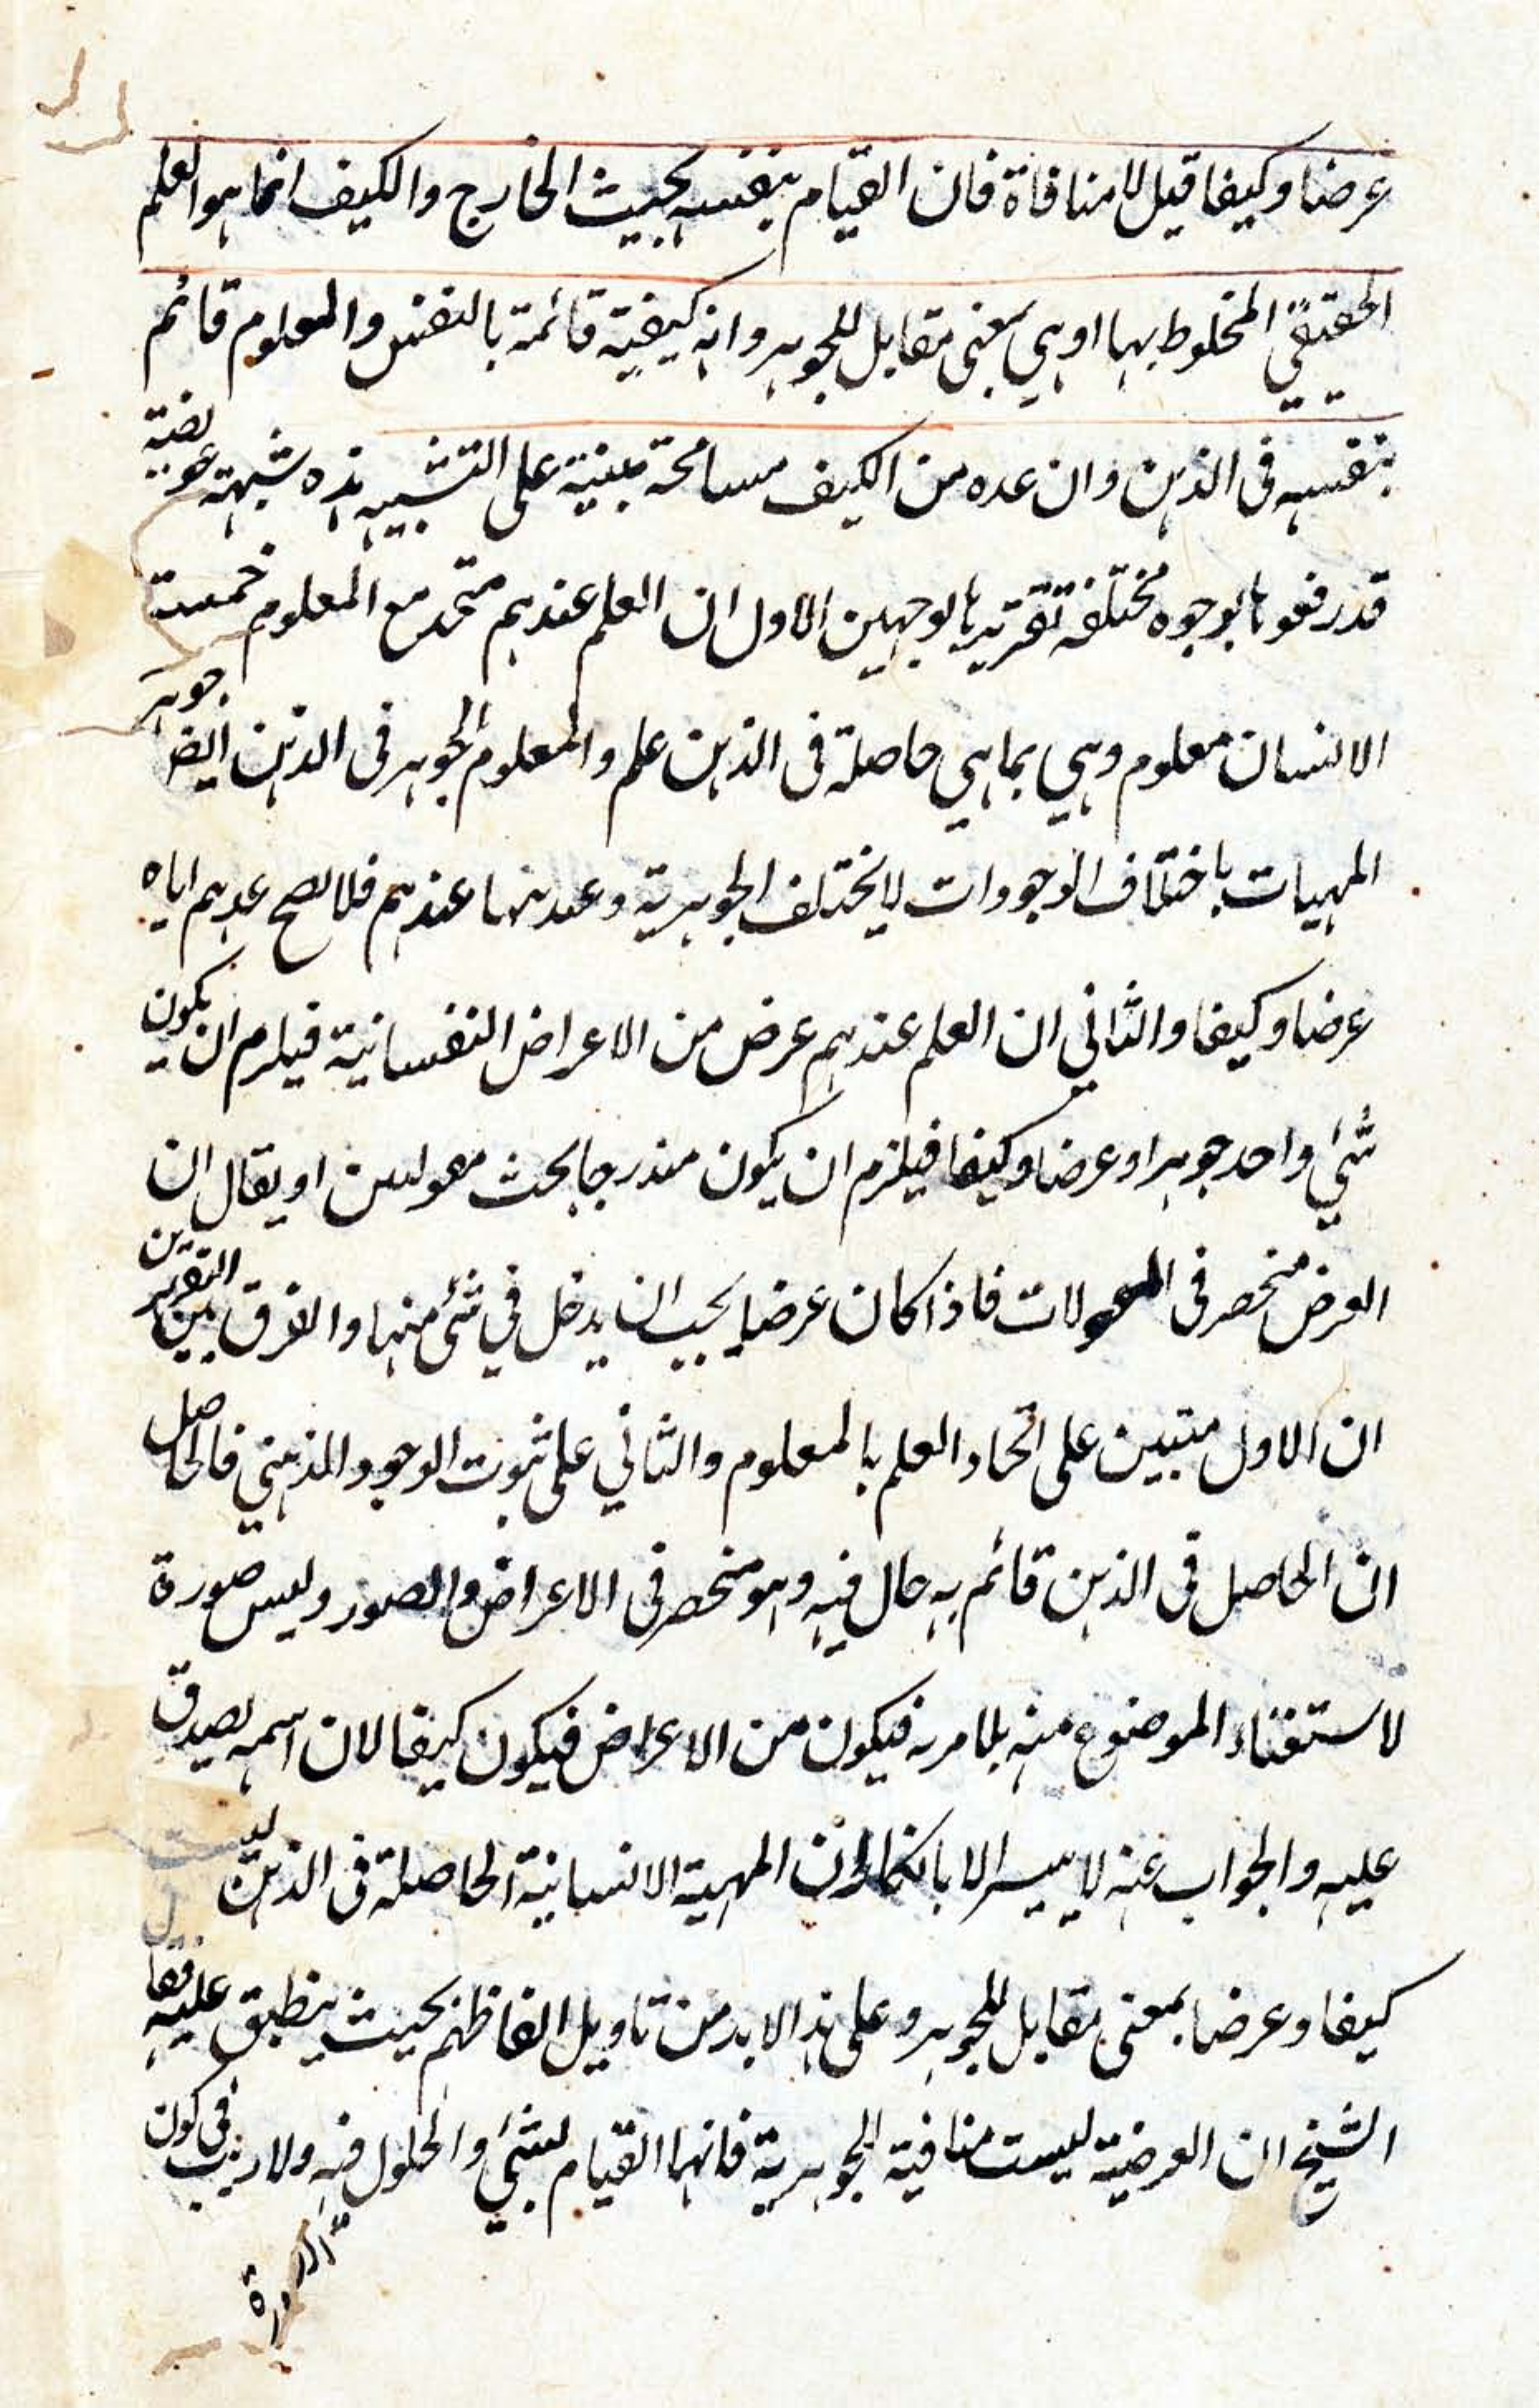 عرضا وكيفا قيل لا منافاة فان القيام بنفسه بحيث الخارج والكيف انما هو العلم
الحقيقي المخلوط بها او هي بمعنى مقابل للجوهر وانه كيفية قائمة بالنفس والمعلوم قائم
بنفسه فى الذهن وان عده من الكيف مسامحة مبنية على التشبيه هذه شبهة عويصة
قد رفعوها بوجوه مختلفة تقريرها بوجهين الاول ان العلم عندهم متحد مع المعلوم
الانسان معلوم وهي بما هي حاصلة فى الذهن علم والمعلوم الجوهر فى الذهن ايضا جوهر
المهيات باختلاف الوجودات لا يختلف الجوهرية وعندنا عندهم فلا يصح عدهم اياه
عرضا وكيفا والثاني ان العلم عندهم عرض من الاعراض النفسانية فيلزم ان يكون
شئي واحد جوهرا وعرضا وكيفا فيلزم ان يكون مندرجا تحت مقولتين او يقال ان
العرض منحصر فى المقولات فاذا كان عرضا يجب ان يدخل في شئ منها والفرق بين التقريرين
ان الاول متبين على اتحاد العلم بالمعلوم والثاني على ثبوت الوجود الذهني فالحاصل
ان الحاصل فى الذهن قائم به حال فيه وهو منحصر فى الاعراض والصور وليس صورة
لاستغناء الموضوع منه بلا مرية فيكون من الاعراض فيكون كيفا لان اسمه يصدق
عليه والجواب عنه لا يتيسر الا بانكار ان المهية الانسانية الحاصلة فى الذهن ليست
كيفا وعرضا بمعنى مقابل للجوهر وعلى هذا لا بد من تاويل الفاظهم بحيث ينطبق عليه فقال
الشيخ ان العرضية ليست منافية الجوهرية فانها القيام بشئي والحلول فيه ولا ريب فى كون